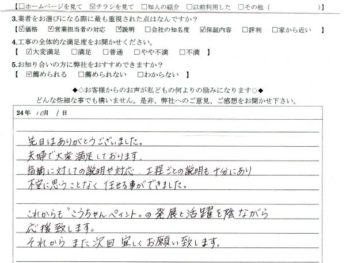 □ホームページを見て ☑チラシを見て □知人の紹介 □以前利用した □その他（ ）
3.業者をお選びになる際に最も重視された点はなんですか？
☑価格 ☑営業担当者の対応 ☑説明 □会社の知名度 ☑保証内容 □評判 □家から近い
4.工事の全体的な満足度をお聞かせください。
☑大変満足 □満足 □普通 □やや不満 □不満
5.お知り合いの方に弊社をおすすめできますか？
☑薦められる □薦められない □わからない
◆◇お客様からのお声が私どもの何よりの励みになります◇◆
どんな些細な事でも構いません。是非、弊社へのご意見、ご感想をお聞かせ下さい。
24年 月 日
先日はありがとうございました。
夫婦で大変満足しております。
指摘に対しての説明や対応、工程ごとの説明も十分にあり
不安に思うことなく任せる事ができました。
これからも"こうちゃんペイント"の発展と活躍を陰ながら
応援致します。
それから また次回 宜しくお願い致します。